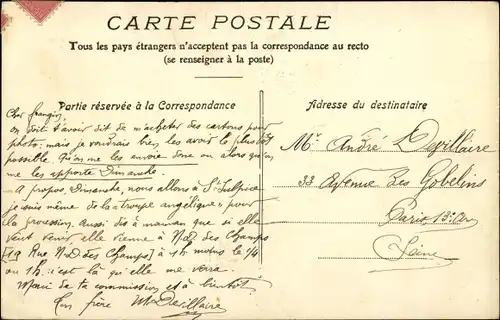 CARTE POSTALE
Tous les pays étrangers n'acceptent pas la correspondance au recto
(se renseigner à la poste)
Partie réservée à la Correspondance
Cher frangin,
on doit t'avoir dit de m'acheter des cartons pour
photo; mais je voudrais bien les avoir le plus tôt
possible. Qu'on me les envoie donc ou alors qu'on
me les apporte Dimanche.
A propos, Dimanche, nous allons à St Sulpice
je suis même de la troupe angélique pour
la procession. Aussi dis à maman que si elle
veut venir, elle vienne à N.D. des Champs
(19 Rue N.D. des Champs) à 1h moins le 1/4
ou 1h. c'est là qu'elle me verra.
Merci de ta commission et à bientôt.
Ton frère M Devillaire
Adresse du destinataire
Mr André Devillaire
33 Avenue des Gobelins
Paris 13e Arr
Seine